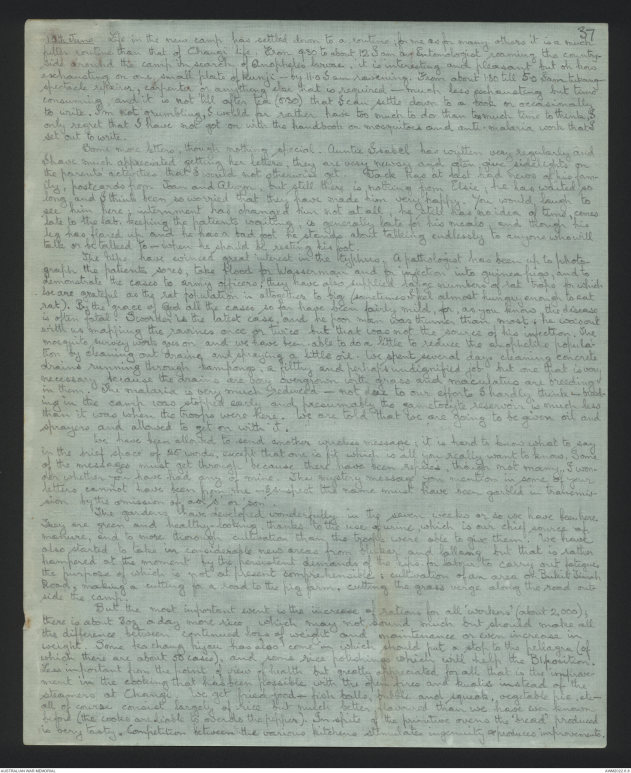 37
19th June. Life in the new camp has settled down to a routine; for me as for many others it is a much
fuller routine than that of Changi life. From 930 to about 12 I am an Entomologist roaming the country-
side around the camp in search of Anopheles larvae; it is interesting and pleasant but oh how
exhausting on one small plate of kunji – by 1100 I am ravening. From about 130 till 50 I am
spectacle repairer, carpenter or anything else that is required – much less exhausting but time
consuming and it is not till after tea (530) that I can settle down to a book or occasionally
to write. I'm not grumbling, I would far rather have too much to do than too much time to think; I
only regret that I have not got on with the handbook on mosquitoes and anti-malaria work that I
set out to write.
Some more letters, though nothing special. Auntie Isabel has written very regularly and
I have much appreciated getting her letters, they are very newsy and often give sidelights on
the parents activities that I would not otherwise get. Jack has at last had news of his fam-
ily, postcards from Joan and but still there is nothing from Elsie; he has waited so
long, and I think been so worried that they have made him very happy. You would laugh to
see him here; internment has changed him not at all; he still has no idea of time, comes
late to the lab. keeping the patients waiting, is generally late for his meals, and though his
leg has flared up and he has a bad foot he stands about talking endlessly to anyone who will
talk or be talked to – when he should be resting his foot.
The Nips have evinced great interest in the typhus. A pathologist has been up to photo-
graph the patients' sores, take blood for Wasserman and for injection into guinea pigs, and to
demonstrate the cases to army officers; they have also supplied large numbers of rat traps for which
we are grateful as the rat population is altogether to big (sometimes I feel almost hungry enough to eat
rat). By the grace of God all the cases so far have been fairly mild, for, as you know the disease
is often fatal. is the latest case, and he poor man was thinner than most; he was out
with us mapping the ravines once or twice but that was not the source of his infection. The
mosquito survey work goes on and we have been able to do a little to reduce the anopheline popula-
tion by cleaning out drains and spraying a little oil. We spent several days cleaning concrete
drains running through kampongs, a filthy and perhaps undignified job but one that is very
necessary because the drains are overgrown with grass and maculatus are breeding
in them. Our malaria is very much reduced – not due to our efforts I hardly think –
ing in the camp was stopped early and presumably the gametocyte reservoir is much less
than it was when the troops were here. We are told that we are going to be given oil and
sprayers and allowed to get on with it.
We have been allowed to send another wireless message; it is hard to know what to say
in the brief space of 25 words, except that one is fit which is all you really want to know. Some
of the messages must get through because there have been replies, though not many, I won-
der whether you have had any of mine. The mystery message you mention in some of your
letters cannot have been from me – I suspect the name must have been garbled in transmis-
sion by the omission of a or son.
The gardens have developed wonderfully in the seven weeks or so we have been here.
They are green and healthy-looking, thanks to the use of urine, which is our chief source of
manure, and to more thorough cultivation than the troops were able to give them. We have
also started to take in considerable new areas from and lallang but that is rather
hampered at the moment by the persistent demands of the Nips for labour to carry out fatigues
the purpose of which is not at present comprehensible: cultivation of an area at Bukit Timah
Road; making a cutting for a road to the pig farm; cutting the grass verge along the road out-
side the camp.
But the most important event is the increase of rations for all 'workers' (about 2,000);
there is about 3oz a day more rice, which may not sound much but should make all
the difference between continued loss of weight and maintenance or even increase in
weight. Some kachang hijau has also come in which should put a stop to the pellagra (of
which there are about 50 cases), and some rice polishings which will help the B1 position.
Less important from the point of view of health but greatly appreciated for all that is the improve-
ment in the cooking that has been possible with the open fires and kualis instead of the
steamers at Changi. We get fried food – fish balls, bubble and squeak, vegetable pie etc –
all of course consist largely of rice but much better flavoured than we have ever known
before (the cooks are liable to overdo the pepper). In spite of the primitive ovens the "bread" produced
is very tasty. Competition between the various kitchens stimulates ingenuity & produces improvements.
AUSTRALIAN WAR MEMORIAL